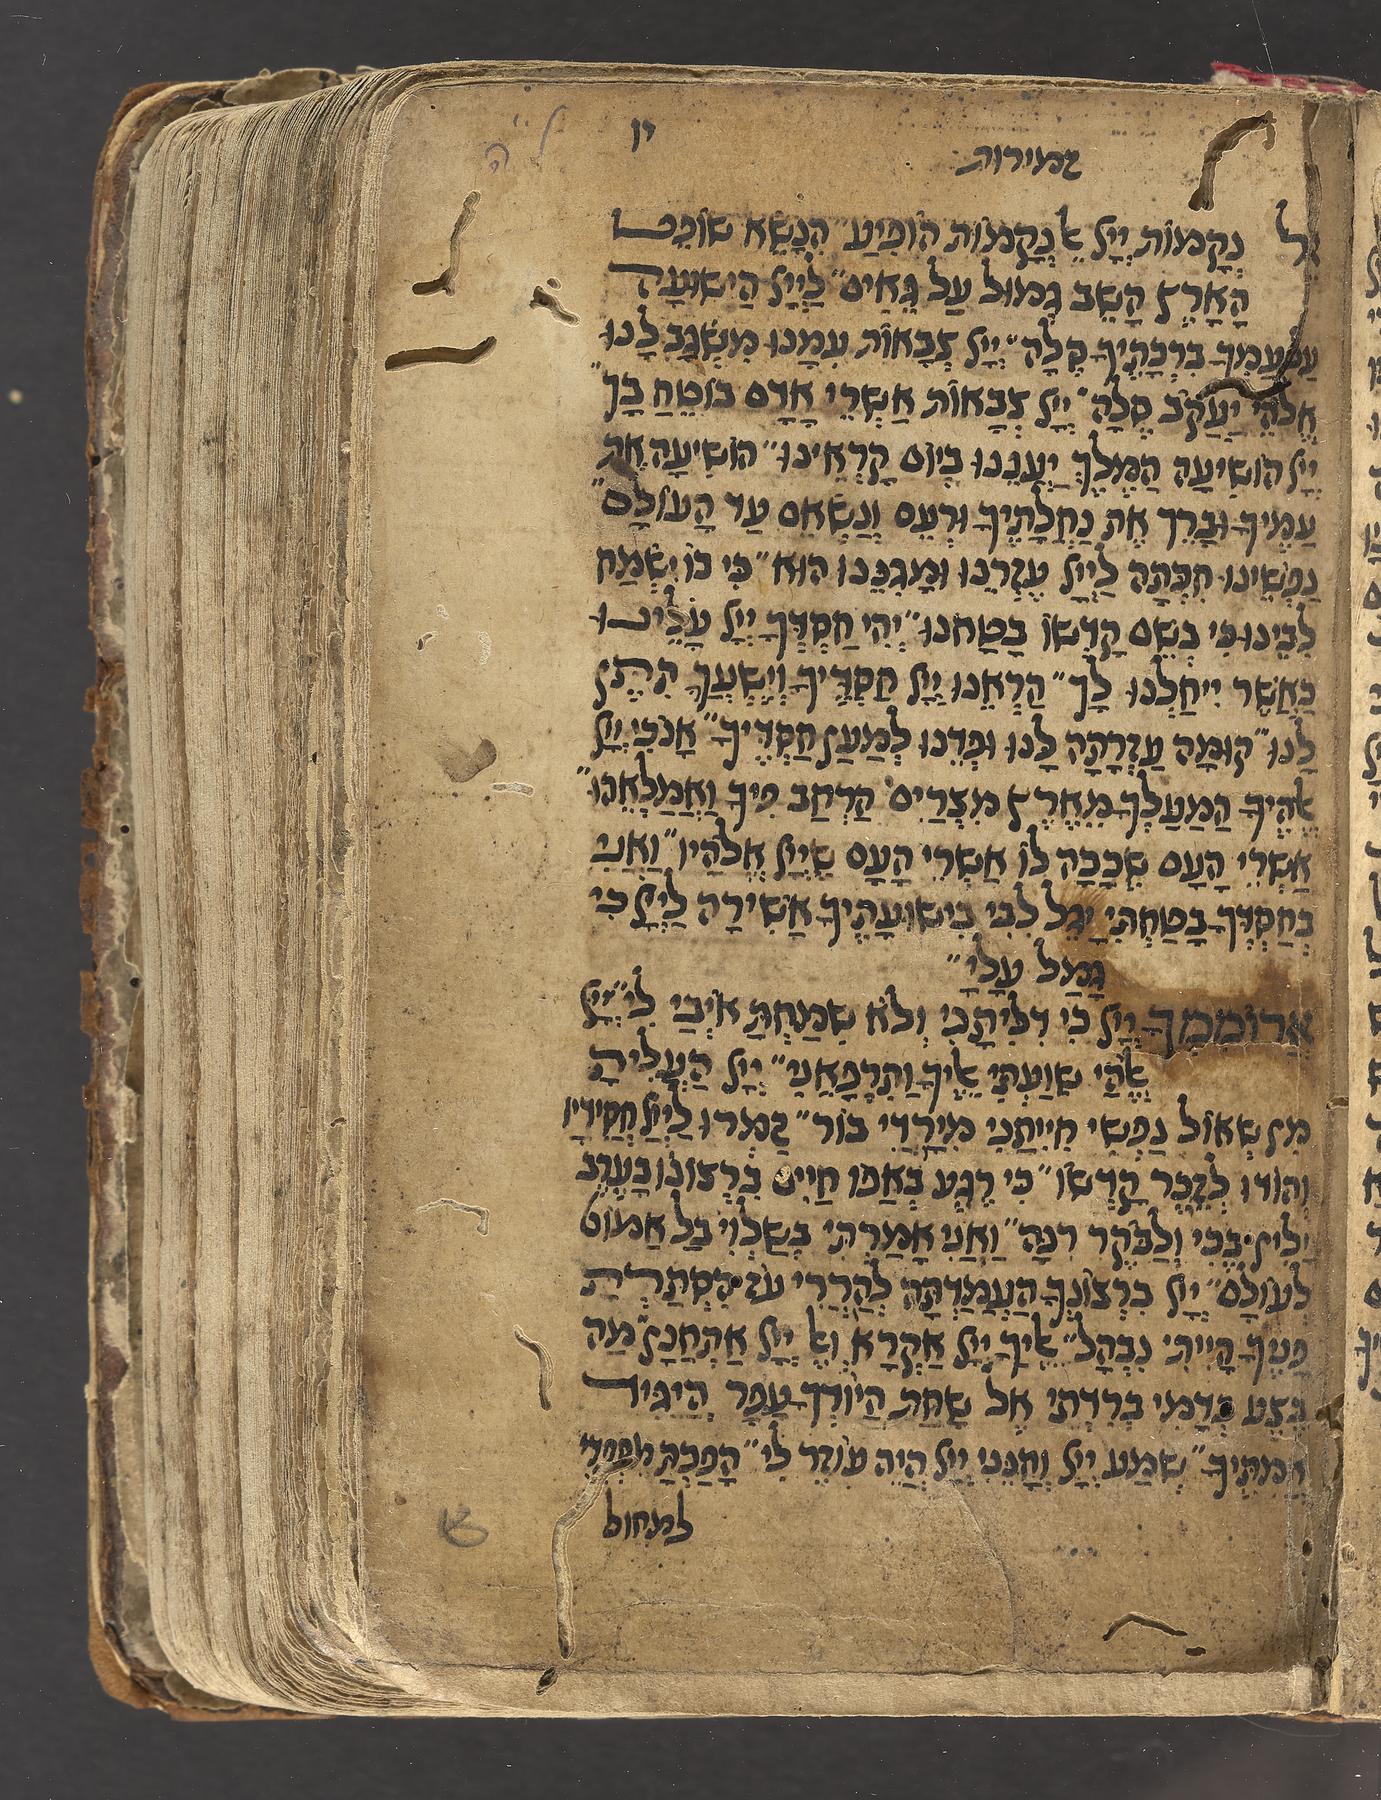 יו
זמירות
אל נְקָמוֹת יְיָ אֵ נְקָמוֹת הוֹפִיעַ״ הִנָּשֵׂא שׁוֹפֵט
הָאָרֶץ הָשֵׁב גְּמוּל עַל גֵּאִים״ לַייָ הַישׁוּעָה
עַל עַמְךָ בִרְכָתֶיךָ סֶלָה״ יְיָ צְבָאוֹת עִמָנוּ מִשְׂגַב לָנוּ
אֱלֹהֵי יַעֲקֹב סֶלָה״ יְיָ צְבָאוֹת אַשְׁרֵי אָדָם בּוֹטֵחַ בָּךְ״
יְיָ הוֹשִׁיעָה הַמֶּלֶךְ יַעֲנֵנוּ בְיוֹם קָרְאֵינוּ״ הוֹשִׁיעָה אֶת
עַמֶּיךָ וּבָרֵךְ אֶת נַחֲלָתֶיךָ וּרְעֵם וְנַשְּׂאֵם עַד הָעוֹלָם״
נַפְשֵׁינוּ חִכְּתָה לַייָ עֶזְרֵנוּ וּמָגִנֵּנוּ הוּא״ כִּי בוֹ יִשְׂמַח
לִבֵּינוּ כִּי בְשֵׁם קָדְשׁוֹ בָטָחְנוּ״ יְהִי חַסְדְּךָ יְיָ עָלֵינוּ
כַּאֲשֶׁר יִיחַלְנוּ לָךְ״ הַרְאֵנוּ יְיָ חַסְדֶּיךָ וְיֶשְׁעֲךָ תִּתֶּן
לָנוּ״ קוּמָה עֶזְרָתָה לָּנוּ וּפְדֵנוּ לְמַעַן חַסְדֶּיךָ״ אָנֹכִי יְיָ
אֱהֶיךָ הַמַעַלְךָ מֵאֶרֶץ מִצְרַיִם הַרְחֶב פִּיךָ וַאֲמַלְאֵהוּ״
אַשְׁרֵי הָעָם שֶׁכָּכָה לּוֹ אַשְׁרֵי הָעָם שֶׁיְיָ אֱלֹהָיו״ וַאֲנִי
בְּחַסְדְּךָ בָטַחְתִּי יָגֵל לִבִּי בִּישׁוּעָתֶיךָ אָשִׁירָה לַייָ כִּי
גָמַל עָלָי״
אֲרוֹמִמְךָ יְיָ כִּי דִלִּיתָנִי וְלֹא שִׂמַּחְתָּ אוֹיְבַי לִי״ יְיָ
אֱהַי שִׁוַּעְתִּי אֵלֶיךָ וַתִּרְפָּאֵנִי״ יְיָ הֶעֱלִיתָ
מִן שְׁאוֹל נַפְשִׁי חִיִּיתַנִי מִיָּרְדִי בוֹר״ זַמְּרוּ לַייָ חֲסִידָיו
וְהוֹדוּ לְזֵכֶר קָדְשׁוֹ״ כִּי רֶגַע בְּאַפּוֹ חַיִּים בִּרְצוֹנוֹ בָּעֶרֶב
יָלִין בֶּכִי וְלַבֹּקֶר רִנָּה״ וַאֲנִי אָמַרְתִּי בְשַׁלְוִי בַּל אֶמּוֹט
לְעוֹלָם״ יְיָ בִּרְצוֹנְךָ הֶעֱמַדְתָּה לְהַרְרִי עֹז הִסְתַּרְתָּ
פָנֶיךָ הָיִיתִי נִבְהָל״ אֵלֶיךָ יְיָ אֶקְרָא וְאֶ יְיָ אֶתְחַנָּן״ מַה
בֶּצַע בְּדָמִי בְּרִדְתִּי אֶל שָׁחַת הֲיוֹדְךָ עָפָר הֲיַגִּיד
אֲמִתֶּיךָ״ שְׁמַע יְיָ וְחָנֵּנִי יְיָ הֱיֵה עוֹזֵר לִי״ הָפַכְתָּ מִסְפְּדִי
למחול